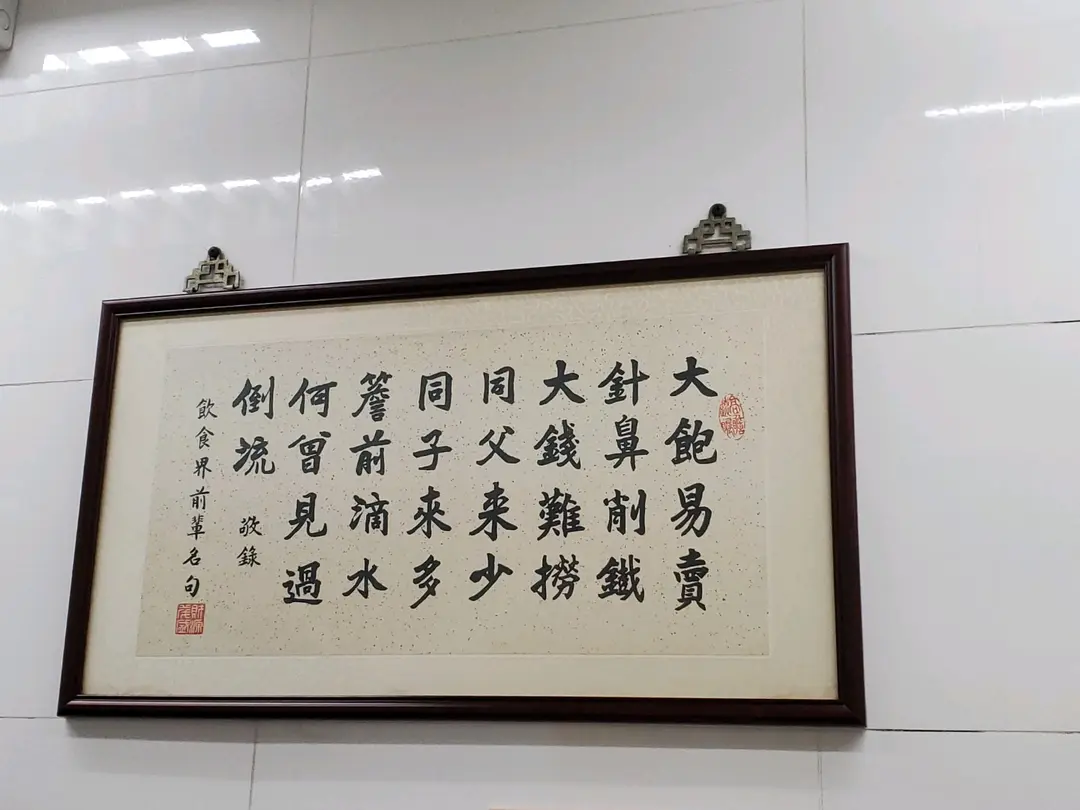 大飽易賣
針鼻削鐵
大錢難撈
同父來少
同子來多
簷前滴水
何曾見過
倒流
敬錄
飲食界前輩名句